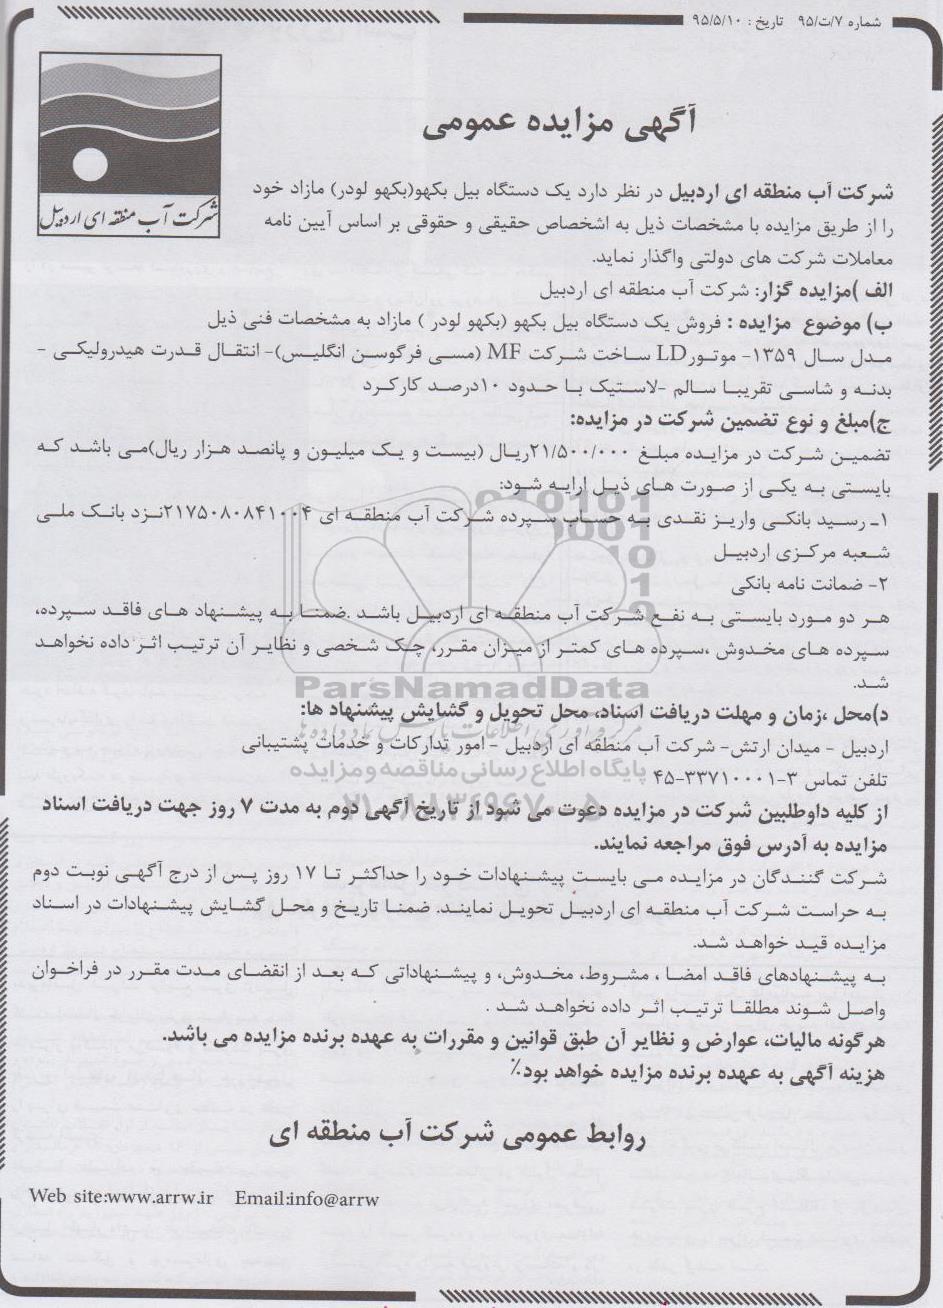 شماره ۷/ت/۹۵ تاریخ : ۹۵/۵/۱۰
شرکت آب منطقه ای اردبیل
آگهی مزایده عمومی
شرکت آب منطقه ای اردبیل در نظر دارد یک دستگاه بیل بکهو(بکهو لودر) مازاد خود
را از طریق مزایده با مشخصات ذیل به اشخصاص حقیقی و حقوقی بر اساس آیین نامه
معاملات شرکت های دولتی واگذار نماید.
الف )مزایده گزار: شرکت آب منطقه ای اردبیل
ب) موضوع مزایده : فروش یک دستگاه بیل بکهو (بکهو لودر ) مازاد به مشخصات فنی ذیل
مدل سال ۱۳۵۹- موتورLD ساخت شرکت MF (مسی فرگوسن انگلیس)- انتقال قدرت هیدرولیکی -
بدنه و شاسی تقریبا سالم -لاستیک با حدود ۱۰درصد کارکرد
ج)مبلغ و نوع تضمین شرکت در مزایده:
تضمین شرکت در مزایده مبلغ ۲۱/۵۰۰/۰۰۰ریال (بیست و یک میلیون و پانصد هزار ریال)می باشد که
بایستی به یکی از صورت های ذیل ارایه شود:
۱ـ رسید بانکی واریز نقدی به حساب سپرده شرکت آب منطقه ای ۲۱۷۵۰۸۰۸۴۱۰۰۴نزد بانک ملی
شعبه مرکزی اردبیل
۲- ضمانت نامه بانکی
هر دو مورد بایستی به نفع شرکت آب منطقه ای اردبیل باشد .ضمنا به پیشنهاد های فاقد سپرده،
سپرده های مخدوش ،سپرده های کمتر از میزان مقرر، چک شخصی و نظایر آن ترتیب اثر داده نخواهد
شد.
ParsNamadData
د)محل ،زمان و مهلت دریافت اسناد، محل تحویل و گشایش پیشنهاد ها:
اردبیل - میدان ارتش- شرکت آب منطقه ای اردبیل - امور تدارکات و خدمات پشتیبانی
پایگاه اطلاع رسانی مناقصه و مزایده
تلفن تماس ۳-۳۳۷۱۰۰۰۱-۴۵
از کلیه داوطلبین شرکت در مزایده دعوت می شود از تاریخ آگهی دوم به مدت ۷ روز جهت دریافت اسناد
مزایده به آدرس فوق مراجعه نمایند.
شرکت گنندگان در مزایده می بایست پیشنهادات خود را حداکثر تا ۱۷ روز پس از درج آگهی نوبت دوم
به حراست شرکت آب منطقه ای اردبیل تحویل نمایند. ضمنا تاریخ و محل گشایش پیشنهادات در اسناد
مزایده قید خواهد شد.
به پیشنهادهای فاقد امضا ، مشروط، مخدوش، و پیشنهاداتی که بعد از انقضای مدت مقرر در فراخوان
واصل شوند مطلقا ترتیب اثر داده نخواهد شد .
هرگونه مالیات، عوارض و نظایر آن طبق قوانین و مقررات به عهده برنده مزایده می باشد.
هزینه آگهی به عهده برنده مزایده خواهد بود./
روابط عمومی شرکت آب منطقه ای
Web site:www.arrw.ir Email:info@arrw